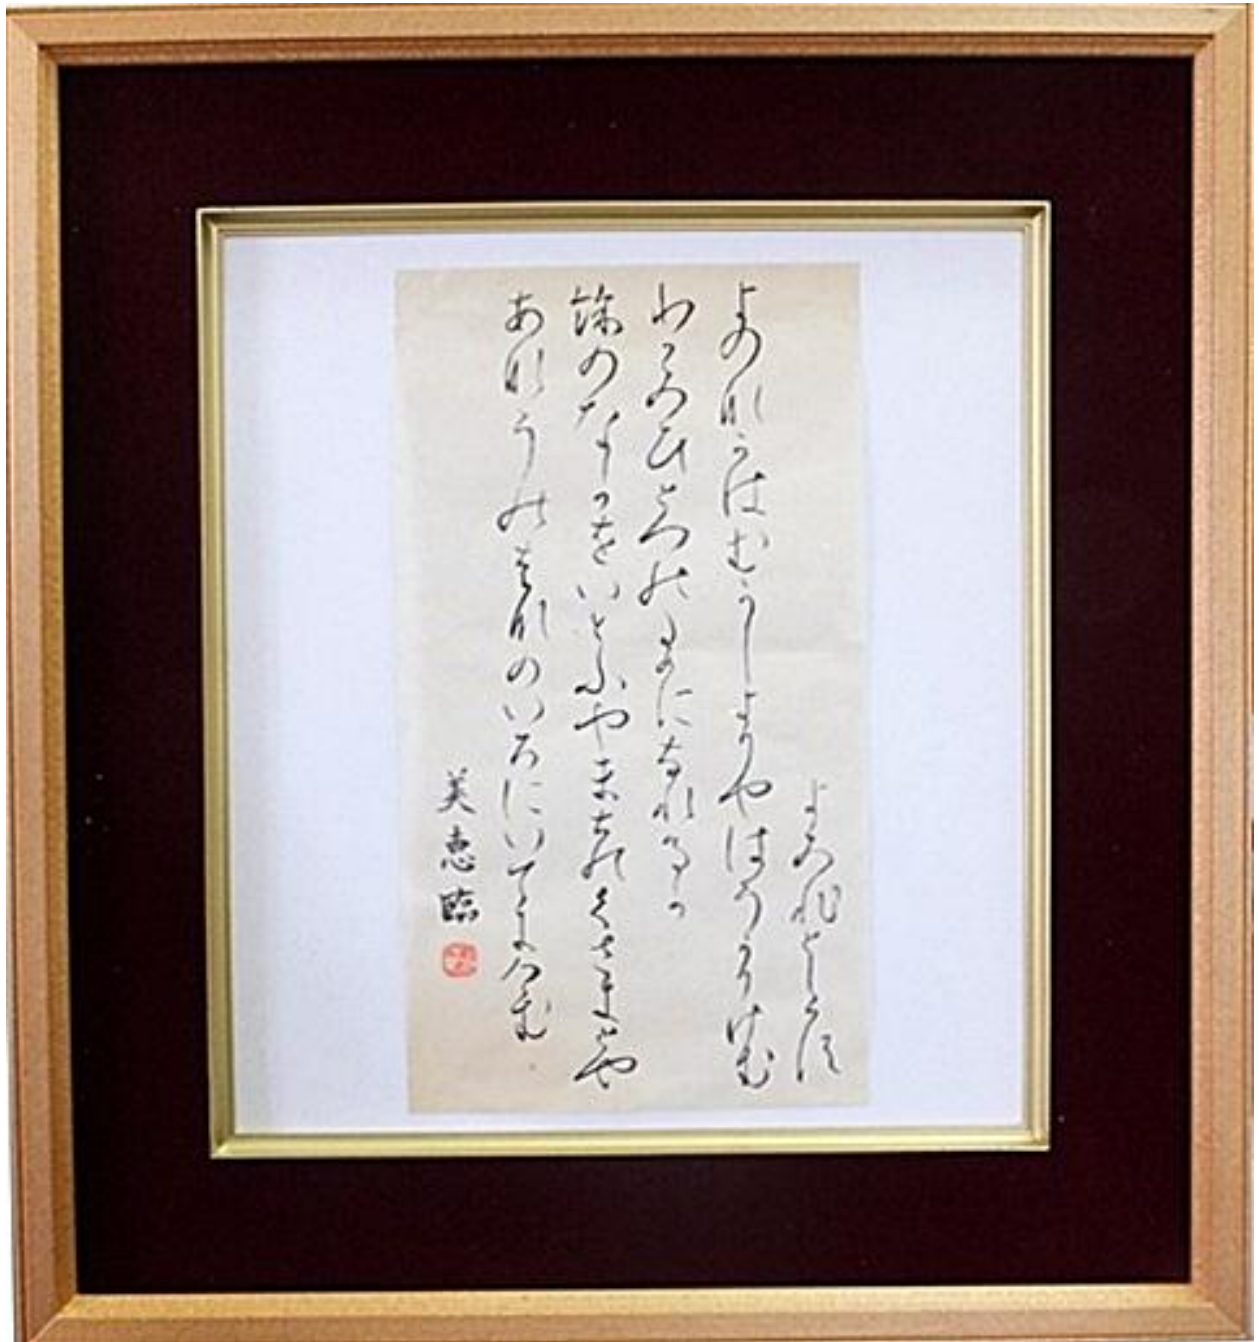 よみ人しらす
よのなかはむかしよりやはうかりけむ
わかみひとつのためになれるか
餘のなかをいとふやまへのくさきとや
あなうのはなのいろにいてにけむ
美恵臨